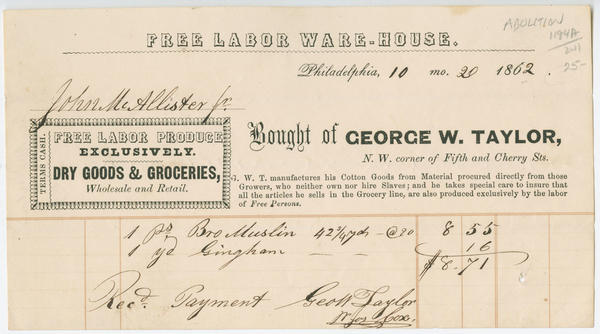 FREE LABOR WARE-HOUSE.
ABOLITION
1194A
2411
25-
Philadelphia, 10 mo. 20 1862.
John McAllister Jr.
TERMS CASH.
FREE LABOR PRODUCE
EXCLUSIVELY.
DRY GOODS & GROCERIES,
Wholesale and Retail.
Bought of GEORGE W. TAYLOR,
N. W. corner of Fifth and Cherry Sts.
G. W. T. manufactures his Cotton Goods from Material procured directly from those
Growers, who neither own nor hire Slaves; and he takes special care to insure that
all the articles he sells in the Grocery line, are also produced exclusively by the labor
of Free Persons.
1 Ps Bro Muslin 42 3/4 yds @20 8 55
1 yd Gingham 16
$8.71
Recd. Payment Geo W Taylor
Jos Cox